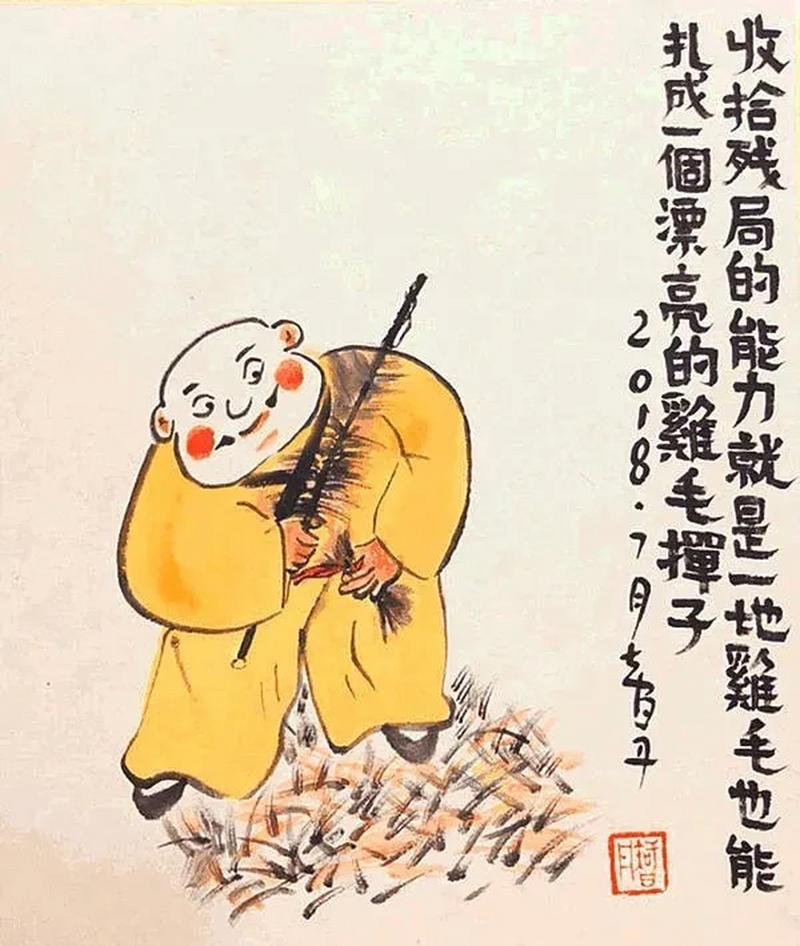 收拾残局的能力就是一地雞毛也能
扎成一個漂亮的雞毛撣子
2018.7月